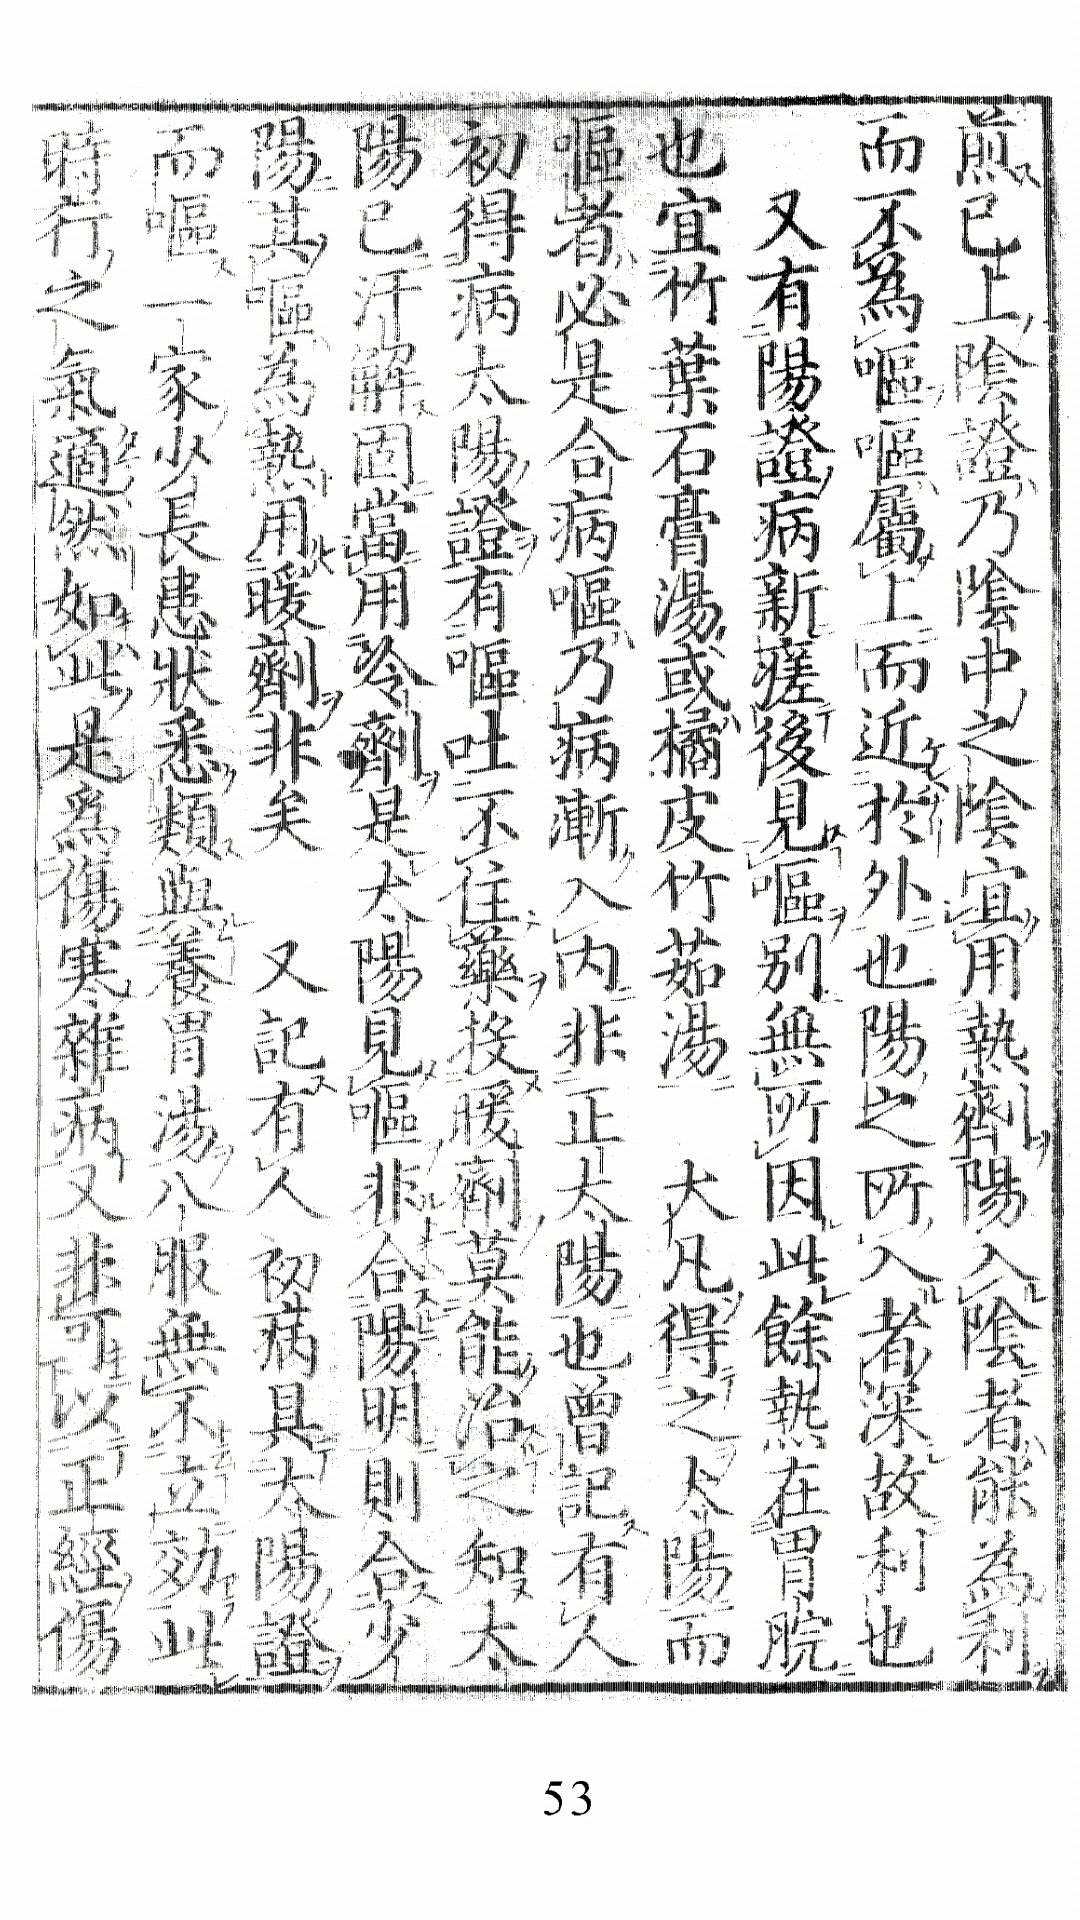 煎已上陰證乃陰中之陰宜用熱劑陽入陰者能為利
而不為嘔嘔屬上而近於外也陽之所入者深故利也
又有陽證病新瘥後見嘔別無所因此餘熱在胃脘
也宜竹葉石膏湯或橘皮竹茹湯 大凡得之太陽而
嘔者必是合病嘔乃病漸入內非正太陽也曾記有人
初得病太陽證有嘔吐不住藥投暖劑莫能治之知太
陽已汗解固當用冷劑是太陽見嘔非合陽明則合少
陽其嘔為熱用暖劑非矣 又記有人 初病具太陽證
而嘔一家少長患狀悉類與養胃湯八服無不立効此
時行之氣適然如此是為傷寒雜病又非可以正經傷
53